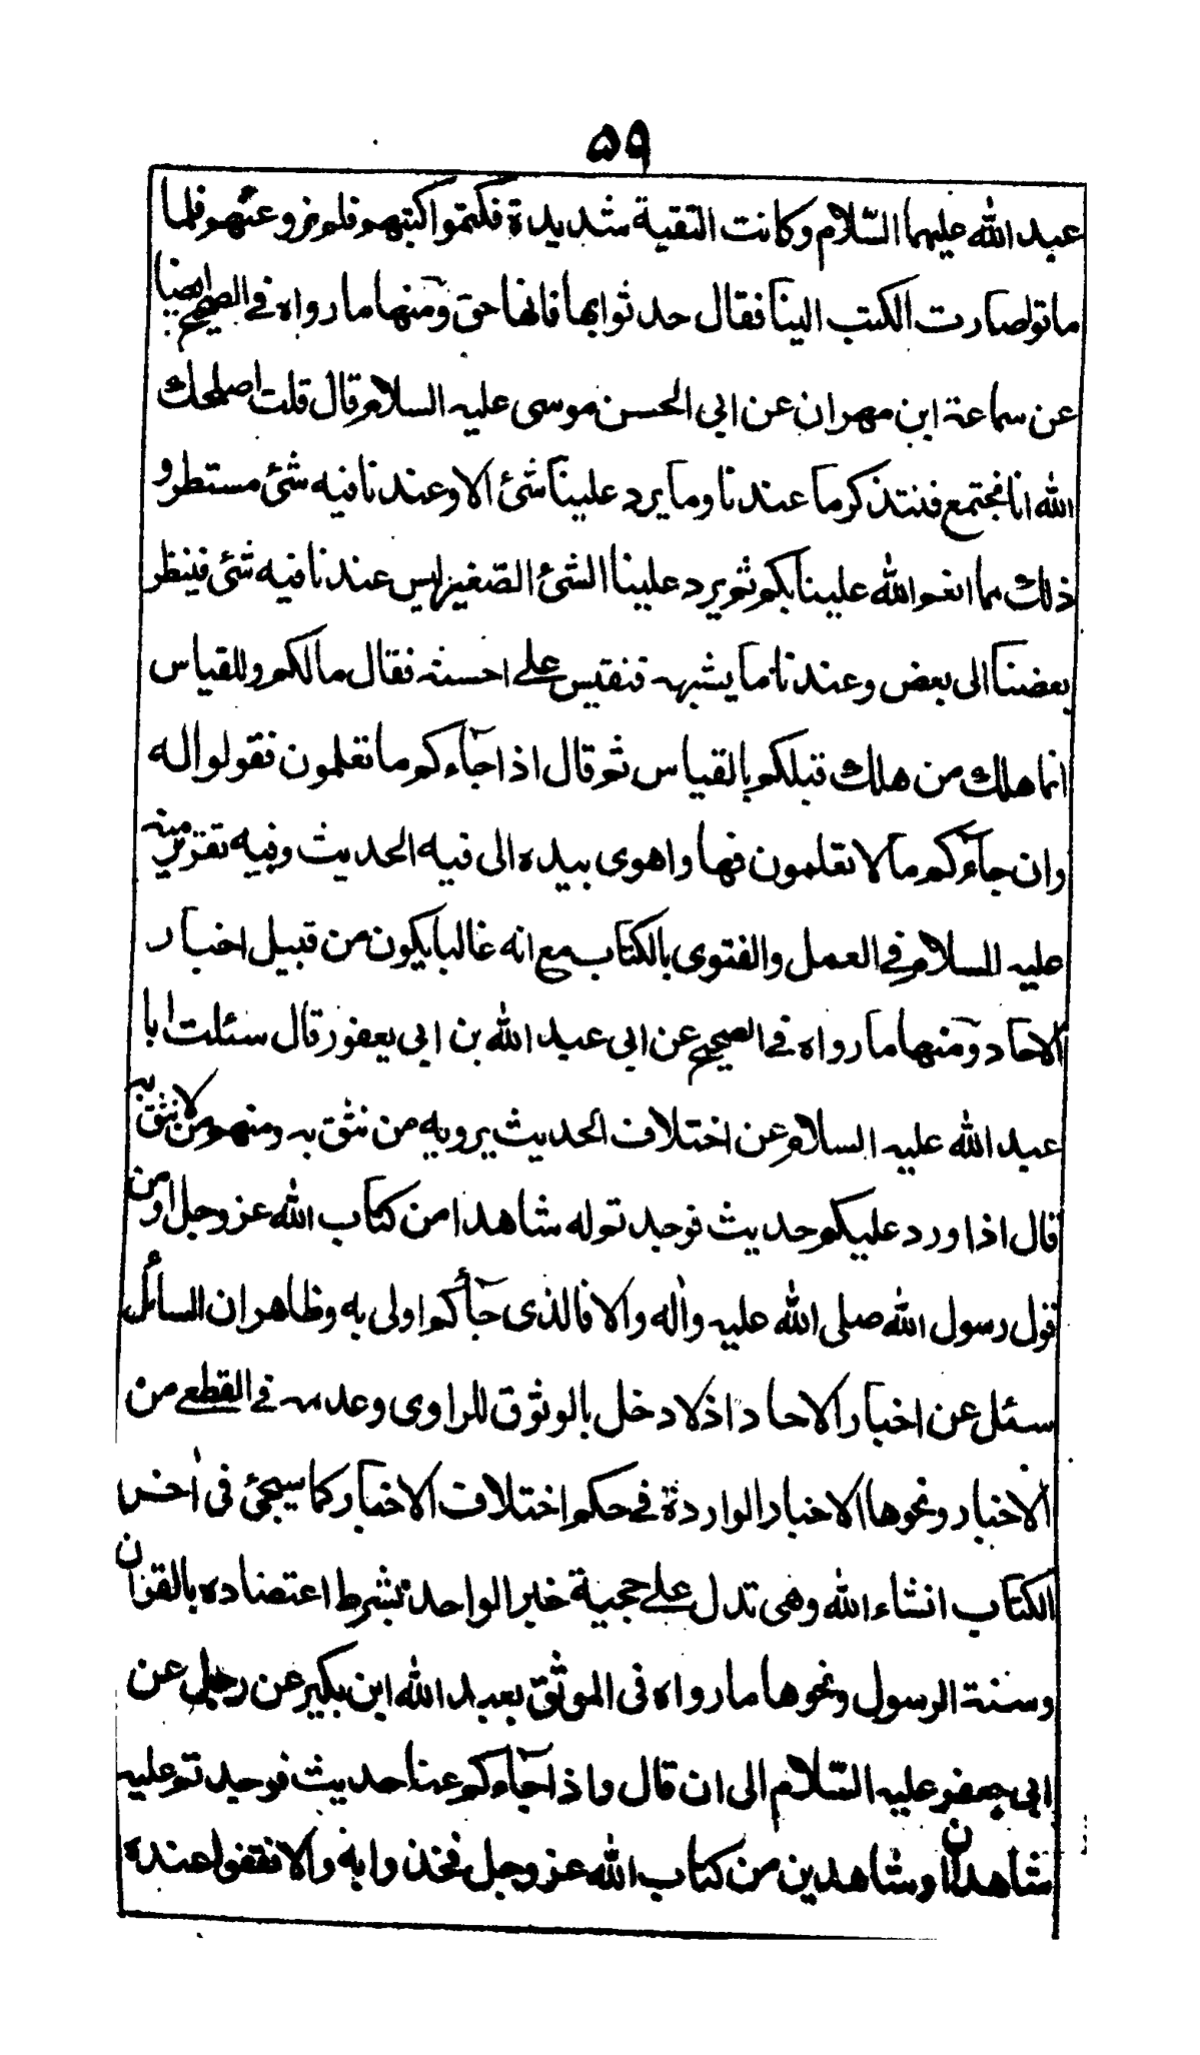 ٥٩
عبد الله عليهما السّلام وكانت التقية شديدة فكتموا كتبهم فلم نرو عنهم فلما
ماتوا صارت الكتب الينا فقال حدثوا بها فانها حق ومنها ما رواه في الصحيح ايضا
عن سماعة ابن مهران عن ابي الحسن موسى عليه السلام قال قلت اصلحك
الله انا نجتمع فنتذكر ما عندنا وما يرد علينا شئ الا وعندنا فيه شئ مستطر و
ذلك مما انعم الله علينا بكم ثم يرد علينا الشئ الصّغير ليس عندنا فيه شئ فينظر
بعضنا الى بعض وعندنا ما يشبهه فنقيس على احسنه فقال مالكم وللقياس
انما هلك من هلك قبلكم بالقياس ثم قال اذا جآءكم ما تعلمون فقولوا له
وان جآءكم ما لا تعلمون فها واهوى بيده الى فيه الحديث وفيه تقرير منه
عليه السلام في العمل والفتوى بالكتاب مع انه غالبا يكون من قبيل اخبار
الاحاد ومنها ما رواه في الصحيح عن ابي عبد الله بن ابي يعفور قال سئلت ابا
عبد الله عليه السلام عن اختلاف الحديث يرويه من نثق به ومنهم من لا نثق به
قال اذا ورد عليكم حديث فوجدتم له شاهدا من كتاب الله عز وجل او من
قول رسول الله صلى الله عليه واله والا فالذى جآءكم اولى به وظاهر ان السائل
سئل عن اخبار الاحاد اذ لا دخل بالوثوق للراوى وعدمه في القطعي من
الاخبار ونحوها الاخبار الواردة في حكم اختلاف الاخبار كما سيجئ في اخر
الكتاب انشاء الله وهي تدل على حجية خبر الواحد بشرط اعتضاده بالقران
وسنة الرسول ونحوها ما رواه في الموثق بعبد الله ابن بكير عن رجل عن
ابي جعفر عليه السّلام الى ان قال واذا جآءكم عنا حديث فوجدتم عليه
شاهدا او شاهدين من كتاب الله عز وجل فخذوا به والا فقفوا عنده